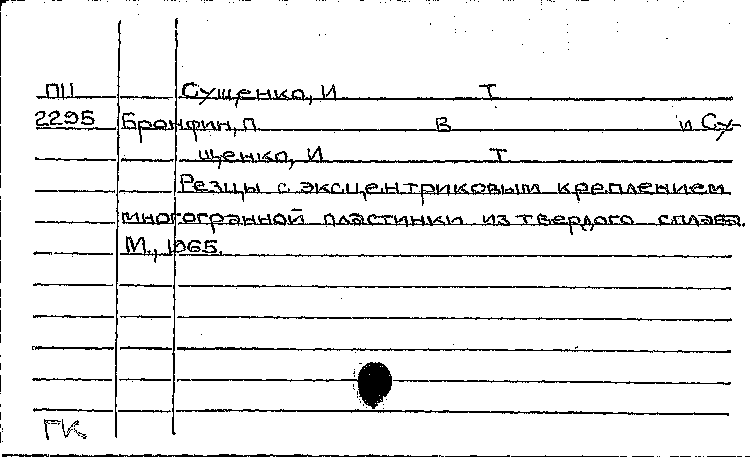 ПII Сущенко, И Т
2295 Бронфин, Л В и Су-
щенко, И Т
Резцы с эксцентриковым креплением
многогранной пластинки из твердого сплава.
М., 1965.
ГК